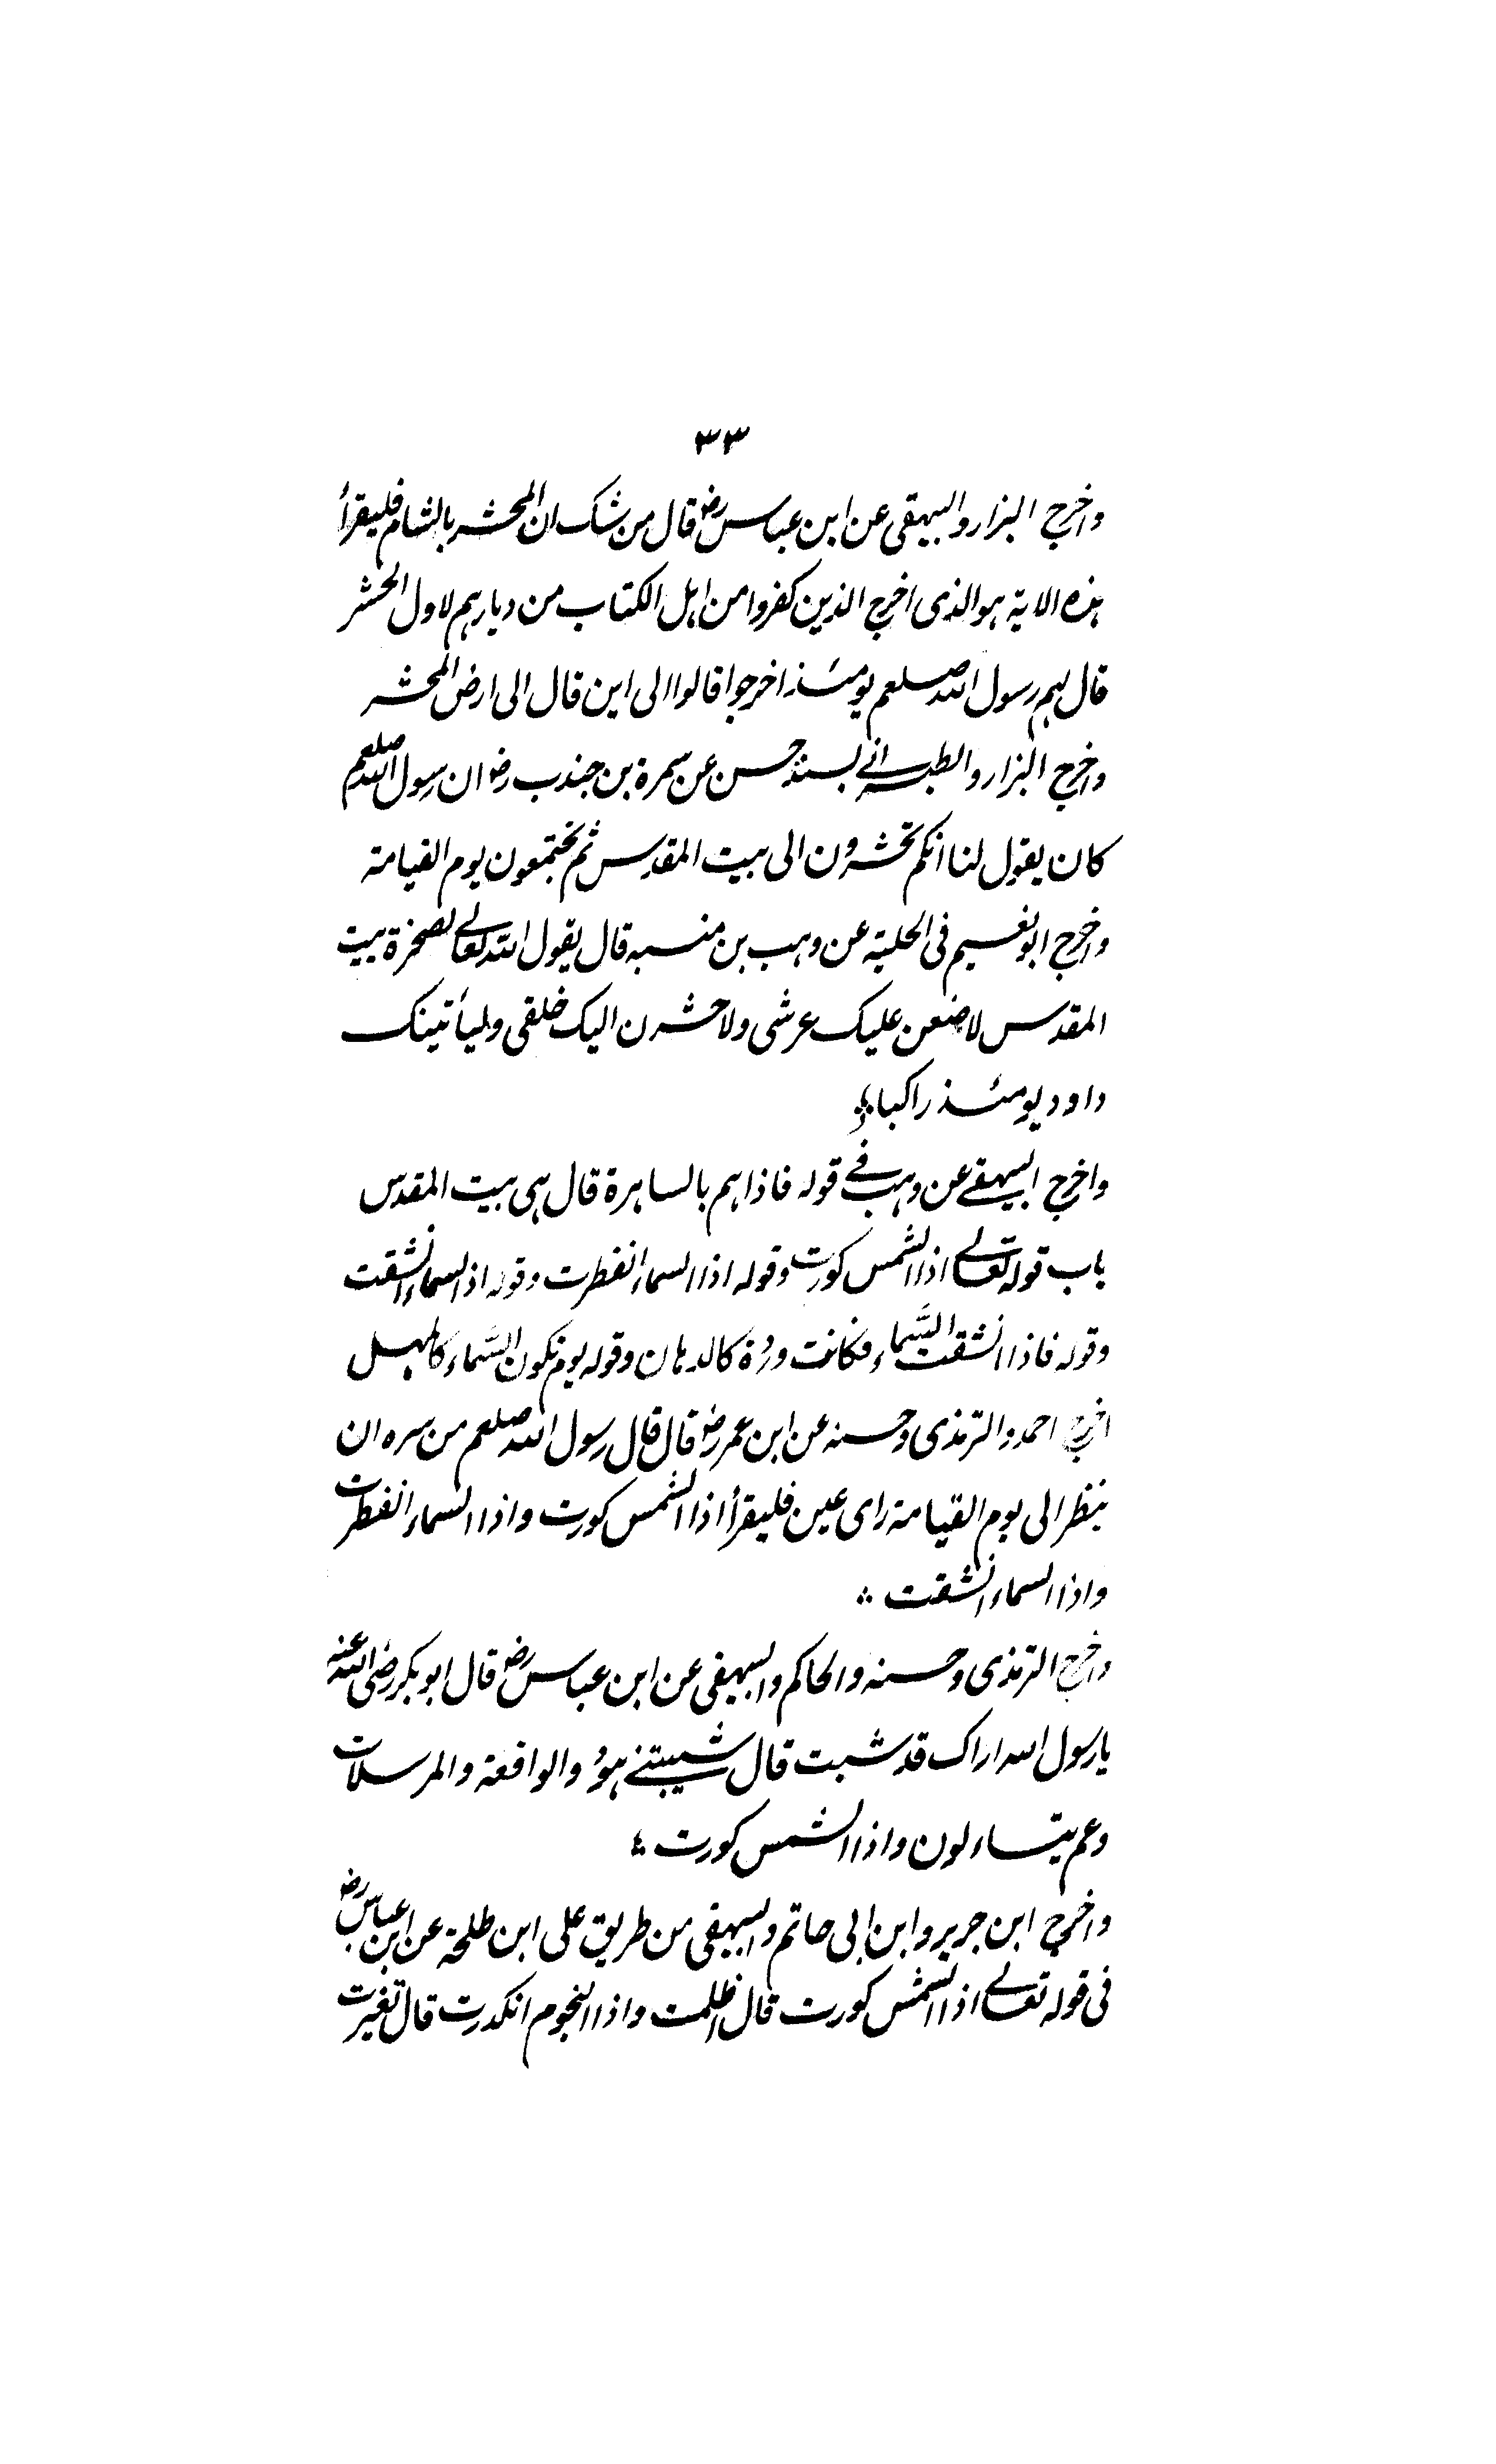 ٣٣
واخرج البزار والبيهقى عن ابن عباس رض قال من شك ان المحشر بالشام فليقرأ
هذه الاية هو الذى اخرج الذين كفروا من اهل الكتاب من ديارهم لاول الحشر
قال لهم رسول الله صلعم يومئذ اخرجوا قالوا الى اين قال الى ارض المحشر
واخرج البزار والطبرانى بسند حسن عن سمرة بن جندب رض ان رسول الله صلعم
كان يقول لنا انكم تحشرون الى بيت المقدس ثم تجتمعون يوم القيامة
واخرج ابو نعيم فى الحلية عن وهب بن منبه قال يقول الله تعالى لصخرة بيت
المقدس لاضعن عليك عرشى ولاحشرن اليك خلقى وليأتينك
داود يومئذ راكبا
واخرج البيهقى عن وهب فى قوله فاذا هم بالساهرة قال هى بيت المقدس
باب قوله تعالى اذا الشمس كورت وقوله اذا السماء انفطرت وقوله اذا السماء انشقت
وقوله فاذا انشقت السَّماء فكانت وردة كالدهان وقوله يوم تكون السَّماء كالمهل
اخرج احمد والترمذى وحسنه عن ابن عمر رض قال قال رسول الله صلعم من سره ان
ينظر الى يوم القيامة راى عين فليقرأ اذا الشمس كورت واذا السماء انفطرت
واذا السماء انشقت
واخرج الترمذى وحسنه والحاكم والبيهقى عن ابن عباس رض قال ابو بكر رضى الله عنه
يا رسول الله اراك قد شبت قال شيبتنى هود والواقعة والمرسلات
وعم يتساءلون واذا الشمس كورت
واخرج ابن جرير وابن ابى حاتم والبيهقى من طريق على ابن طلحة عن ابن عباس رض
فى قوله تعالى اذا الشمس كورت قال اظلمت واذا النجوم انكدرت قال تغيرت